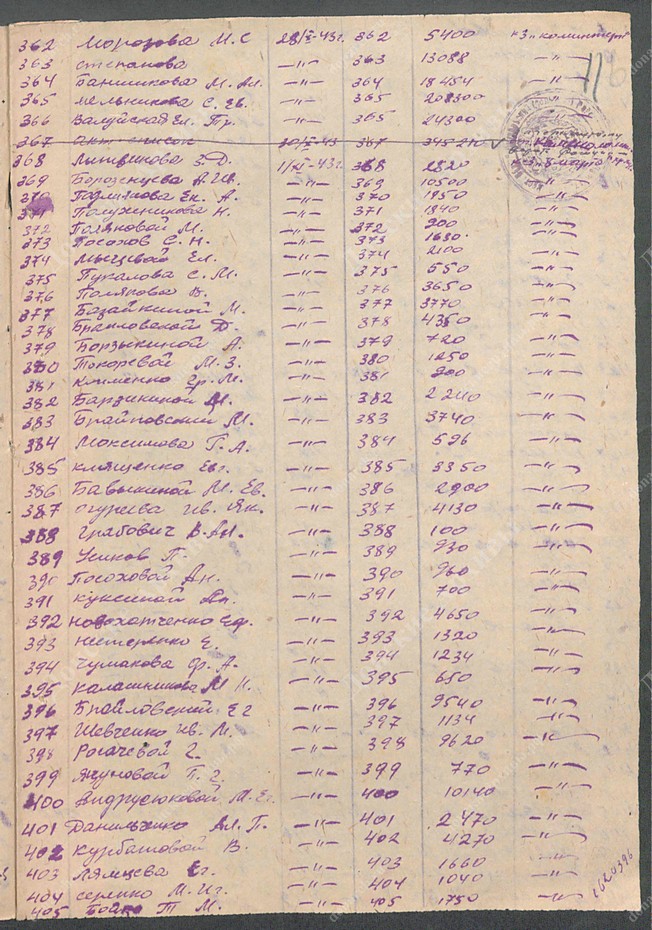 362 Морозова М.С 28/X-43г. 362 5400 "3" коминтерн
363 Степанова —"— 363 13088 —"—
364 Банникова М. Ан. —"— 364 18454 —"—
365 Мельникова С. Ев. —"— 365 208300 —"—
366 Валуйская Ел. Гр. —"— 365 24300 —"—
367 список 367 345210
368 Литвинова З.Д. 1/XI-43г. 368 2820 8 марта
369 Борозенцева А.И. —"— 369 10500 —"—
370 Ек. А. —"— 370 1950 —"—
371 Н. —"— 371 1840 —"—
372 Поляковой М. —"— 372 200 —"—
373 Посохов С. Н. —"— 373 1630 —"—
374 Ел. —"— 374 2100 —"—
375 Пукалова С. М. —"— 375 550 —"—
376 Полякова В. —"— 376 3650 —"—
377 Базайкиной М. —"— 377 3770 —"—
378 Браиловской Д. —"— 378 4350 —"—
379 Борзыкиной А. —"— 379 720 —"—
380 Токоревой М. З. —"— 380 1250 —"—
381 Клименко Гр. М. —"— 381 200 —"—
382 Барзикиной М. —"— 382 2240 —"—
383 Брайловский М. —"— 383 3740 —"—
384 Максимова Т. А. —"— 384 596 —"—
385 Клященко Ев. —"— 385 3350 —"—
386 Бавыкиной М. Ев. —"— 386 2900 —"—
387 Огурцева Ив. Як. —"— 387 4130 —"—
388 Грабович В. Ан. —"— 388 100 —"—
389 Усиков П. —"— 389 930 —"—
390 Посоховой Ан. —"— 390 960 —"—
391 Куксиной Ан. —"— 391 700 —"—
392 Новохатченко Еф. —"— 392 4650 —"—
393 Нестеренко Е. —"— 393 1320 —"—
394 Чумакова Ф. А. —"— 394 1234 —"—
395 Калашникова М Н. —"— 395 650 —"—
396 Брайловской Е г —"— 396 9540 —"—
397 Шевченко Ив. М. —"— 397 1134 —"—
398 Рогачевой Г. —"— 398 9620 —"—
399 Ячуновой Т. Г. —"— 399 770 —"—
400 Андрусюковой М. Ег —"— 400 10140 —"—
401 Данильченко Ал. П. —"— 401 2470 —"—
402 Курбатовой В. —"— 402 4270 —"—
403 Лямцева Ег. —"— 403 1660 —"—
404 Серенко М. Иг. —"— 404 1040 —"—
405 Бойко Т М. —"— 405 1750 —"—
1620396